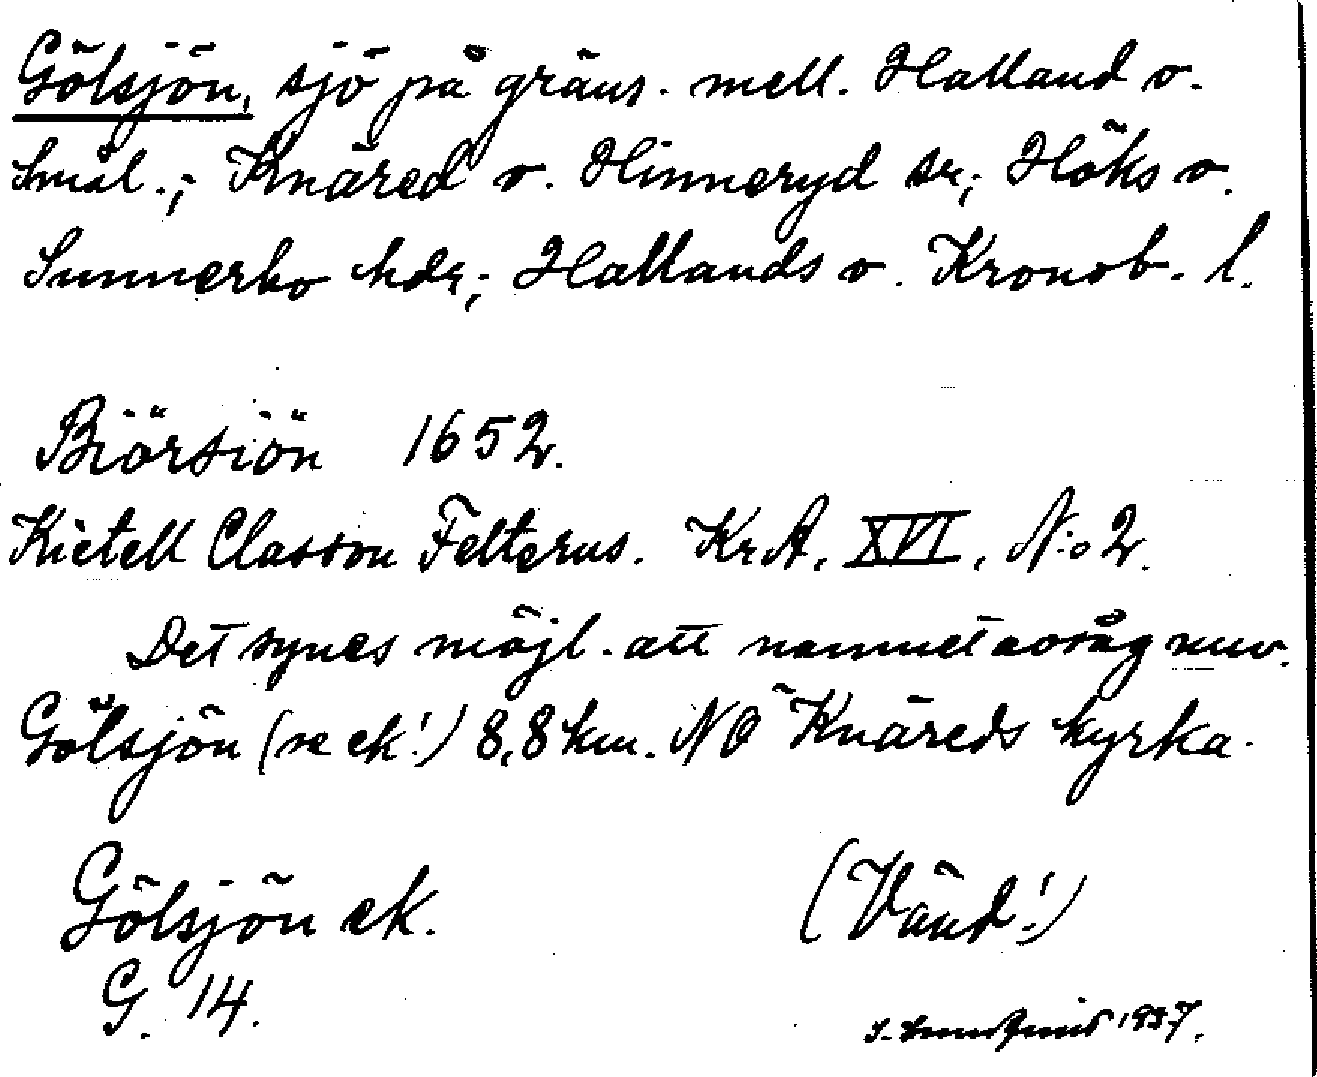 Gölsjön, sjö på gräns. mell. Halland o.
Smål.; Knäred o. Hinneryd sr; Höks o.
Sunnerbo hdr; Hallands o. Kronob. l.
Biörsiön 1652.
Kietell Classon Felterus. Kr.A. XVI, N:o 2.
Det synes möjl. att namnet avsåg nuv.
Gölsjön (se ek!) 8,8 km. NO Knäreds kyrka.
Gölsjön ek. (Vänd!)
G. 14.
1937.